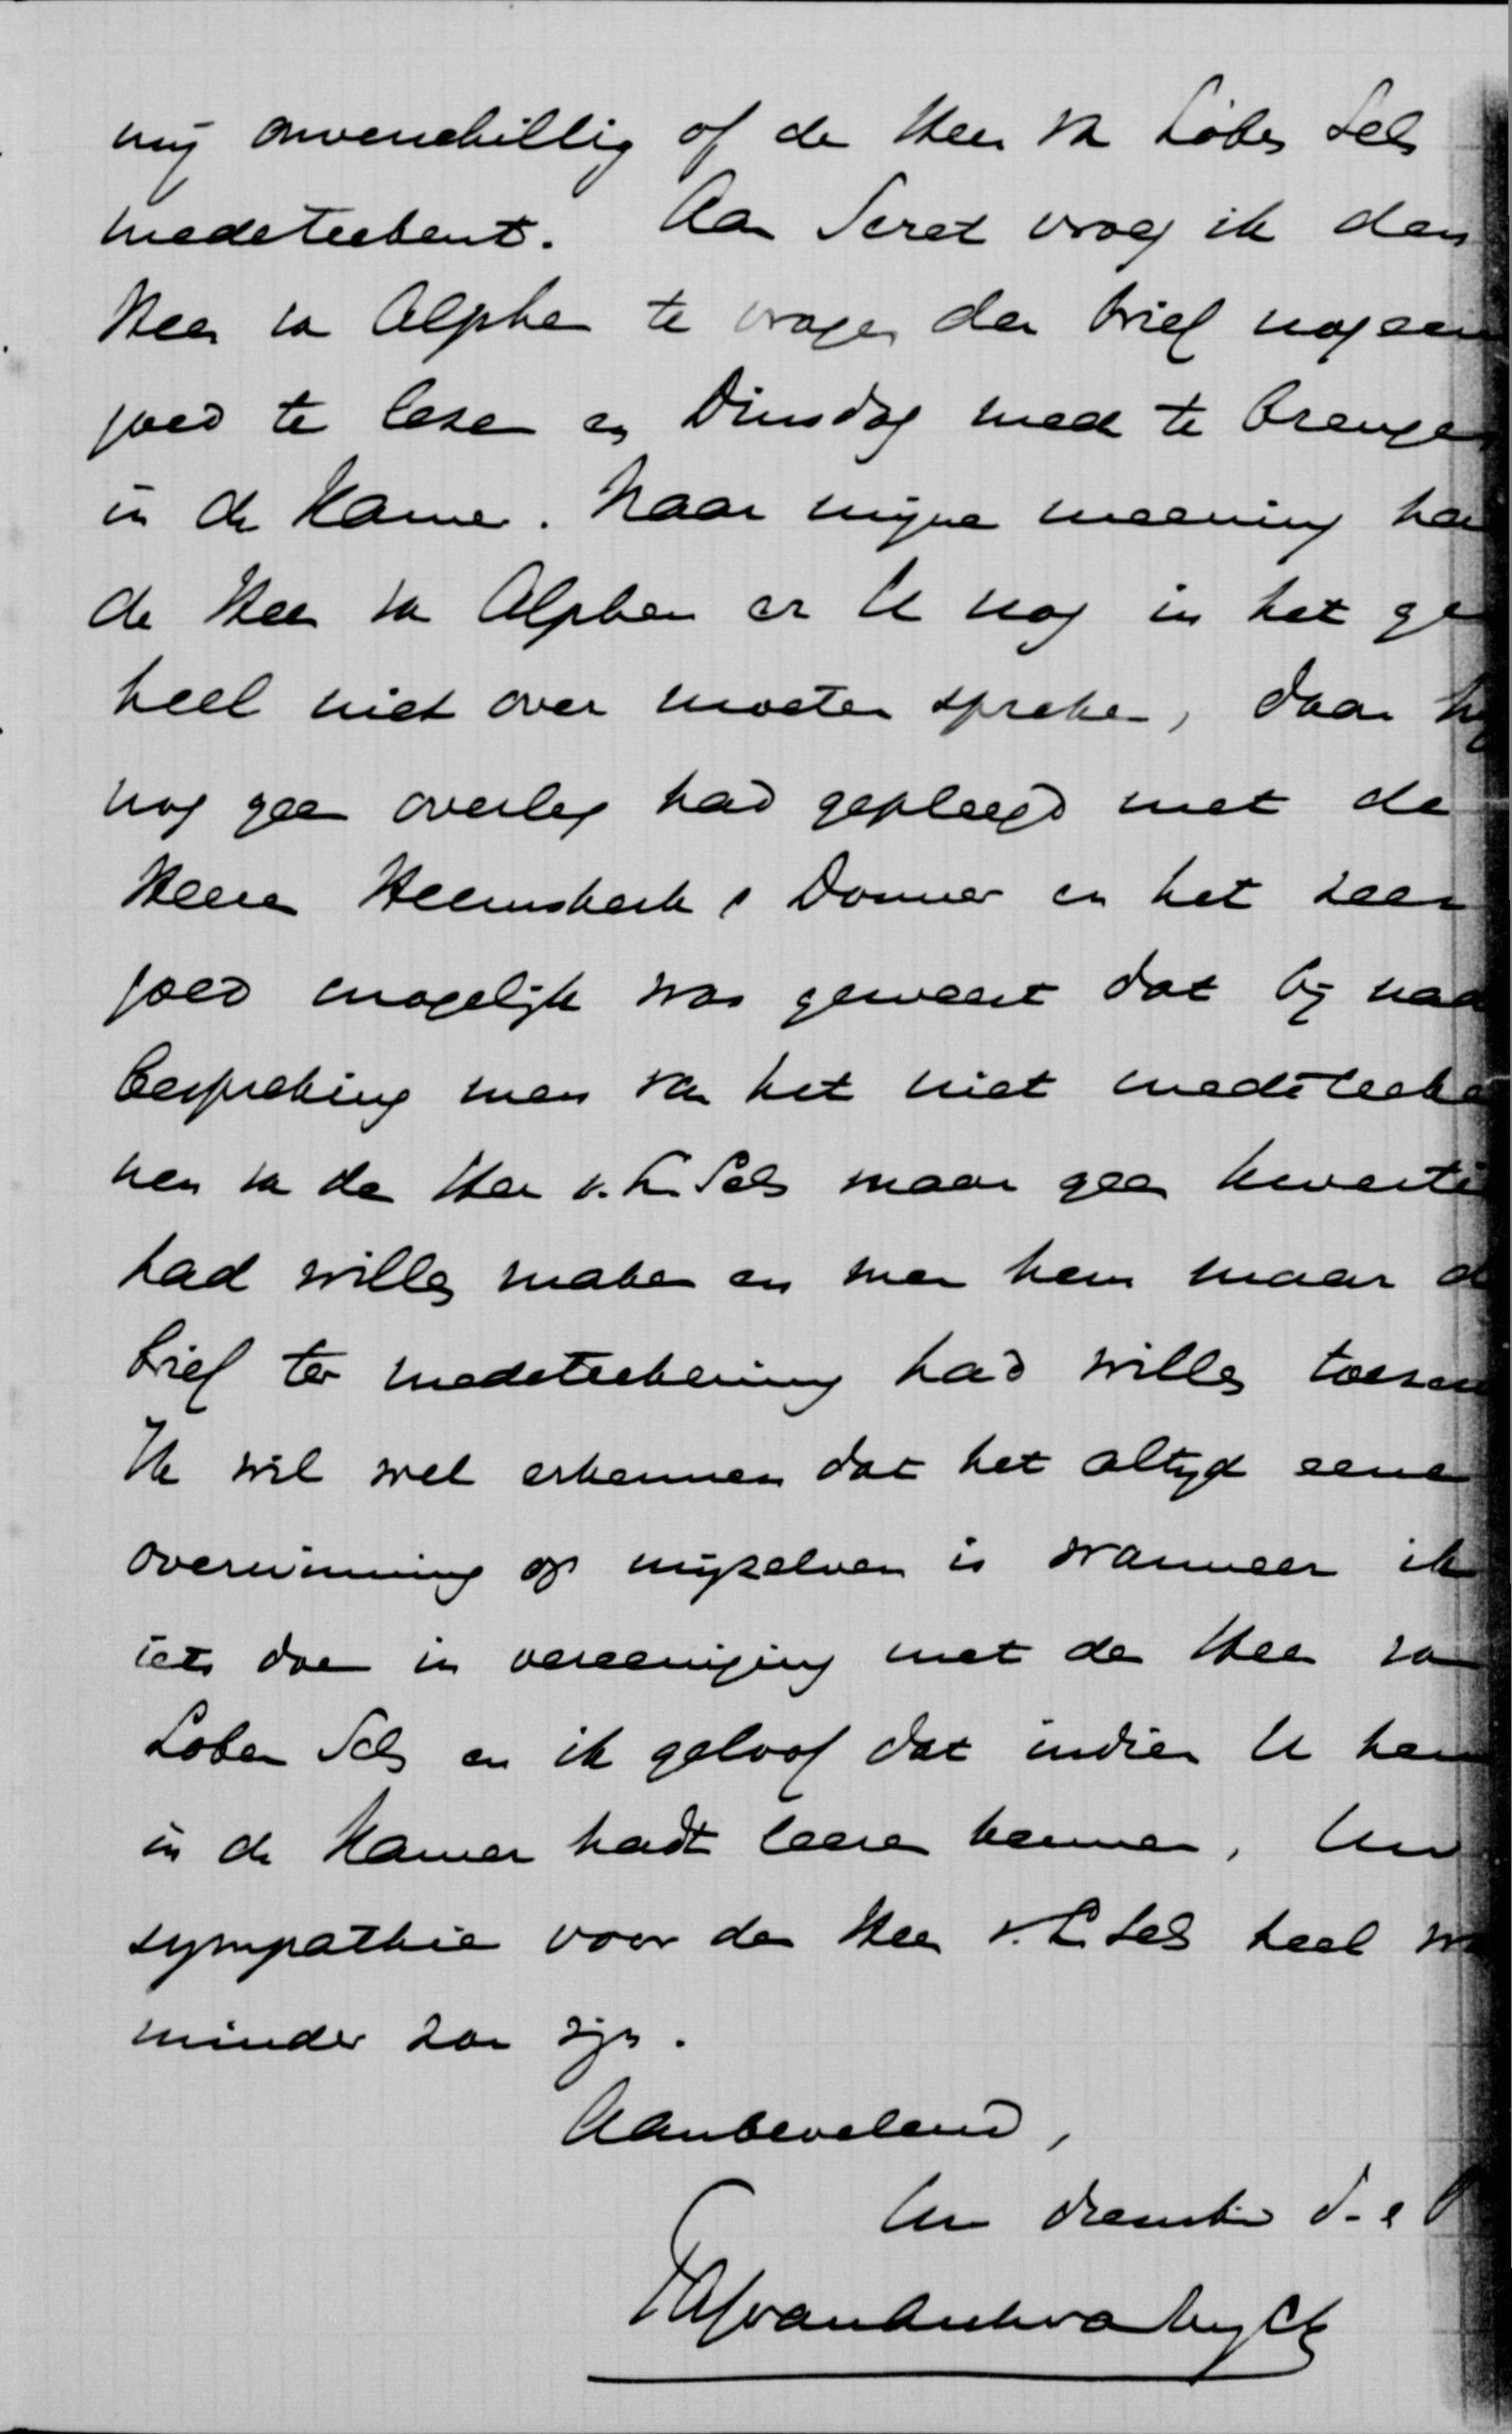 mij onverschillig of de Heer van Löben Sels
medeteekent. Aan Seret vroeg ik den
Heer van Alphen te vragen den brief nog eens
goed te lezen en Dinsdag mede te brengen
in de Kamer. Naar mijne meening had
de Heer van Alphen er U nog in het ge
heel niet over moeten spreken, daar hij
nog geen overleg had gepleegd met de
Heeren Heemskerk & Donner en het zeer
goed mogelijk was geweest dat bij nadere
bespreking men van het niet medeteeke
nen van den Heer v. L. Sels maar geen kwestie
had willen maken en men hem maar de
brief ter medeteekening had willen toezenden
Ik wil wel erkennen dat het altijd eene
overwinning op mijzelven is wanneer ik
iets doe in vereeniging met den Heer van
Loben Sels en ik geloof dat indien U hem
in de Kamer hadt leeren kennen, Uw
sympathie voor den Heer v. L. Sels heel wat
minder zou zijn.
Aanbevelend,
Uw dienstw. d.